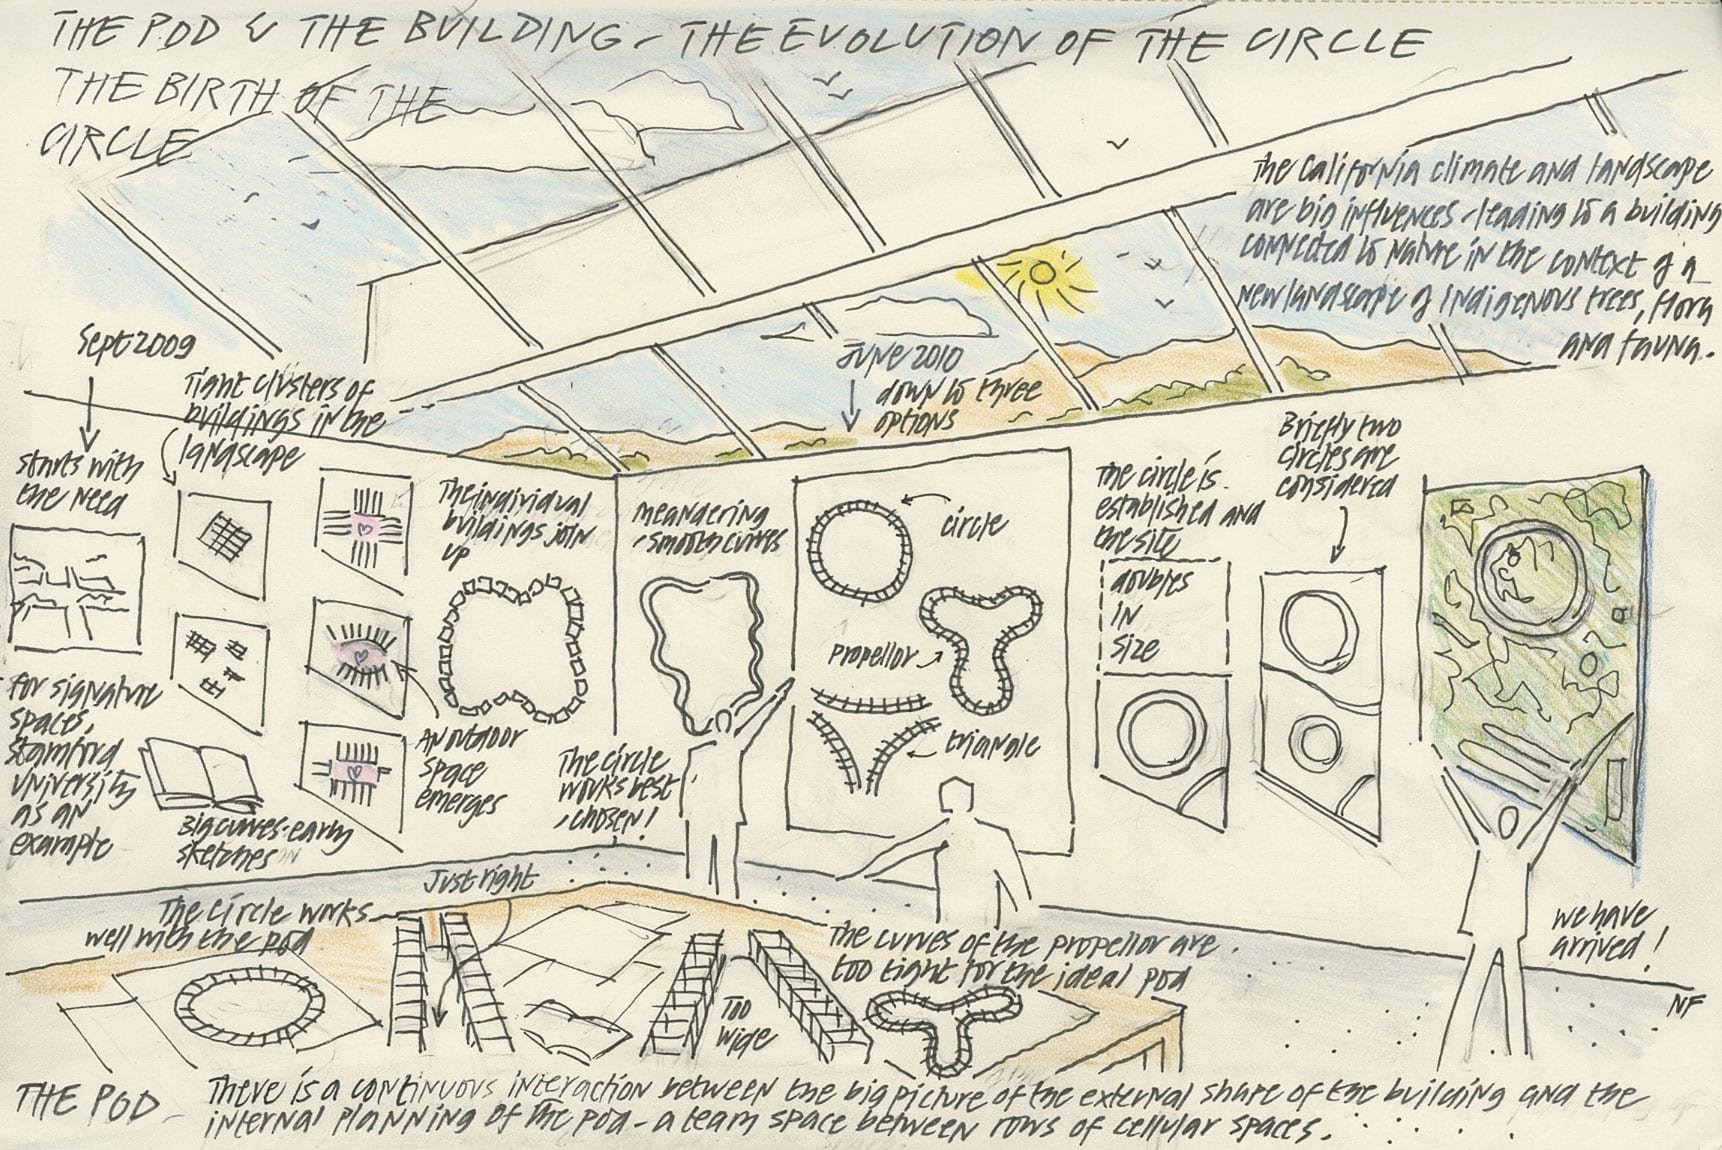 THE POD & THE BUILDING - THE EVOLUTION OF THE CIRCLE
THE BIRTH OF THE
CIRCLE
The California climate and landscape
are big influences - leading to a building
connected to nature in the context of a
new landscape of indigenous trees, flora
and fauna.
Sept 2009
starts with
the need
for signature
spaces,
Stamford
University
as an
example
Tight clusters of
buildings in the
landscape
Big curves - early
sketches
An outdoor
space
emerges
The individual
buildings join
up
meandering
- smooth curves
The circle
works best
- chosen!
June 2010
down to three
options
circle
propellor
triangle
The circle is
established and
the site
doubles
in
size
Briefly two
circles are
considered
we have
arrived!
NF
Just right
The circle works
well with the pod
Too
wide
The curves of the propellor are
too tight for the ideal pod
THE POD - There is a continuous interaction between the big picture of the external shape of the building and the
internal planning of the pod - a team space between rows of cellular spaces.